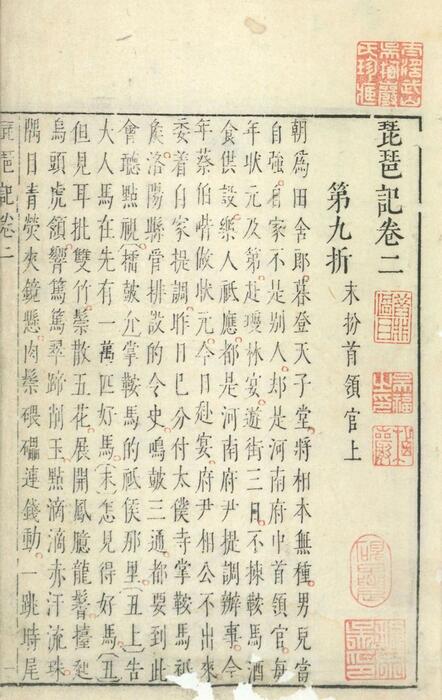 琵琶記卷二
第九折
末扮首領官上
朝爲田舍郎暮登天子堂將相本無種男兒當
自強自家不是別人却是河南府中首領官每
年狀元及第赴瓊林宴遊街三日不揀鞍馬酒
食供設樂人祗應都是河南府尹提調辦事今
年蔡伯喈做狀元今日赴宴府尹相公不出來
委着自家提調昨日已分付太僕寺掌鞍馬祗
矦洛陽縣管排設的令史鳴皷三通都要到此
會聽點視擂皷介掌鞍馬的祗矦那里丑上告
大人馬在先有一萬匹好馬末怎見得好馬丑
但見耳批雙竹鬃散五花展開鳳臆龍鬐擡起
烏頭虎領響篤篤翠蹄削玉點滴滴赤汗流珠
隅目青熒夾鏡懸肉鬃碨礧連錢動一跳時尾
琵琶記卷二